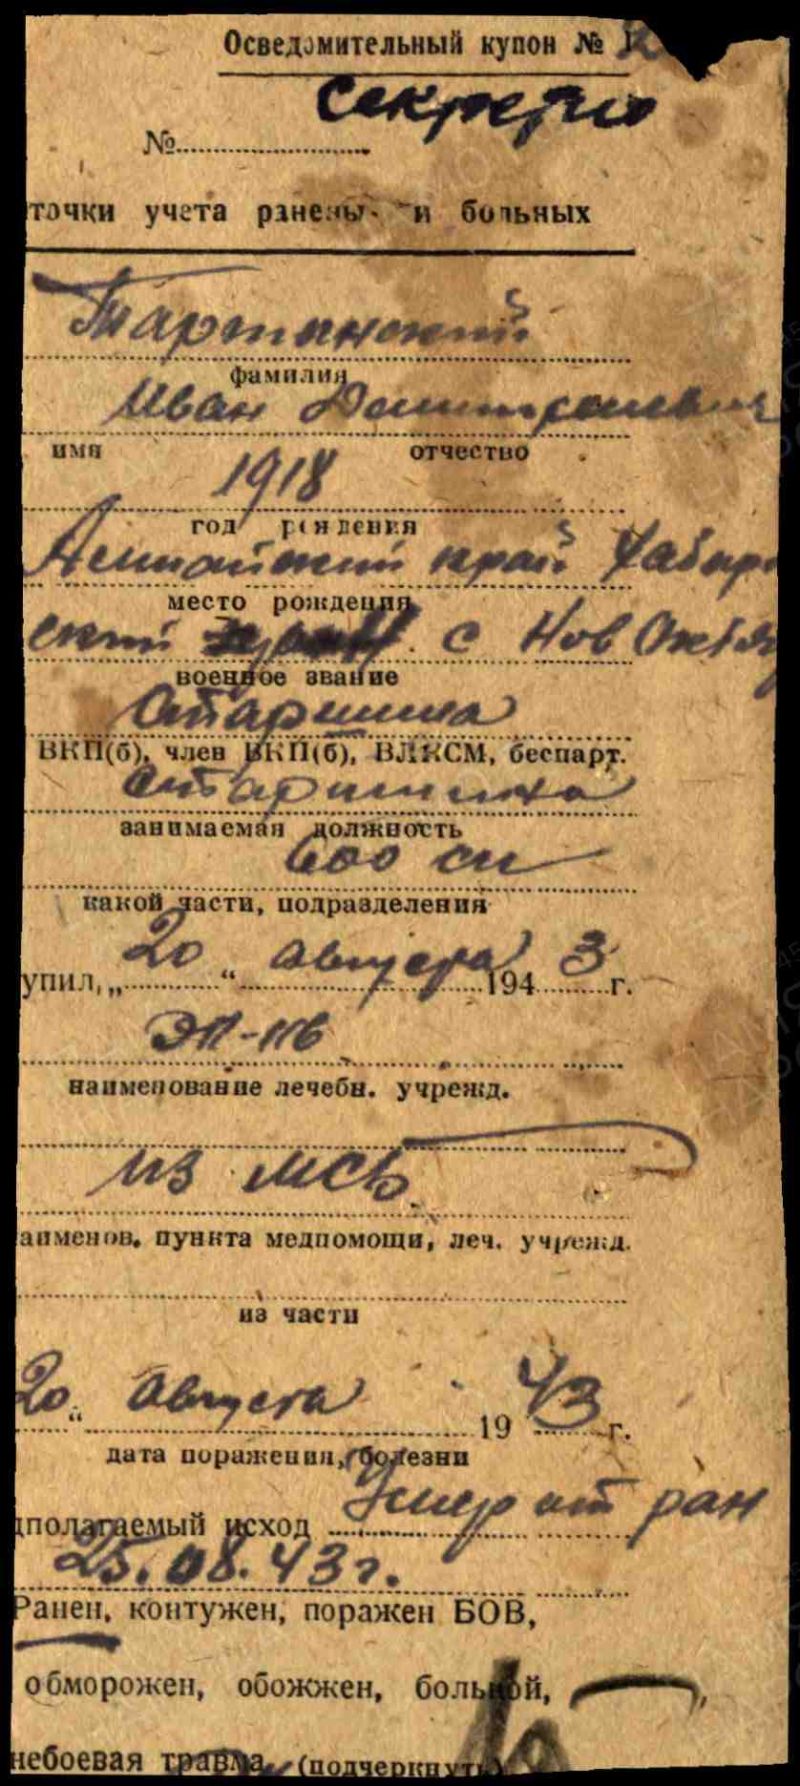 Осведомительный купон №
Секретно
№
точки учета раненых и больных
Тартынский
фамилия
Иван Дмитриевич
имя отчество
1918
год рождения
Алтайский край Хабар
место рождения
ский с Нов Октя
военное звание
Старшина
ВКП(б), член ВКП(б), ВЛКСМ, беспарт.
старшина
занимаемая должность
600 сп
какой части, подразделения
упил, „ 20 “ августа 194 3 г.
ЭП-116
наименование лечебн. учрежд.
из МСБ
аименов. пункта медпомощи, леч. учрежд.
из части
20 “ августа 19 43 г.
дата поражения, болезни
дполагаемый исход Умер от ран
25.08.43 г.
Ранен, контужен, поражен БОВ,
обморожен, обожжен, больной,
небоевая травма (подчеркнуть)